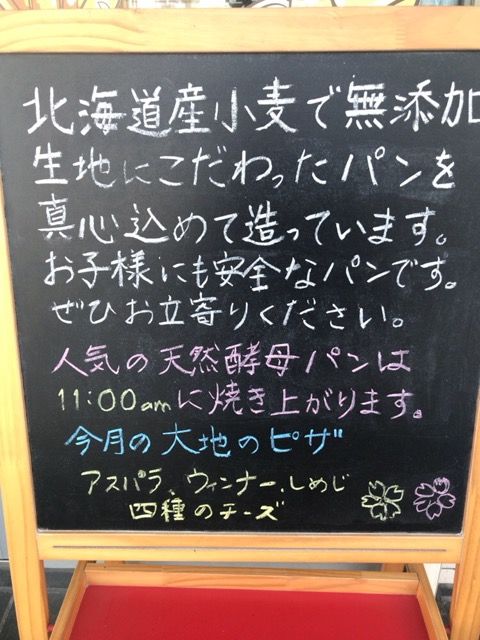 北海道産小麦で無添加
生地にこだわったパンを
真心込めて造っています。
お子様にも安全なパンです。
ぜひお立寄りください。
人気の天然酵母パンは
11:00amに焼き上がります。
今月の大地のピザ
アスパラ、ウィンナー、しめじ
四種のチーズ